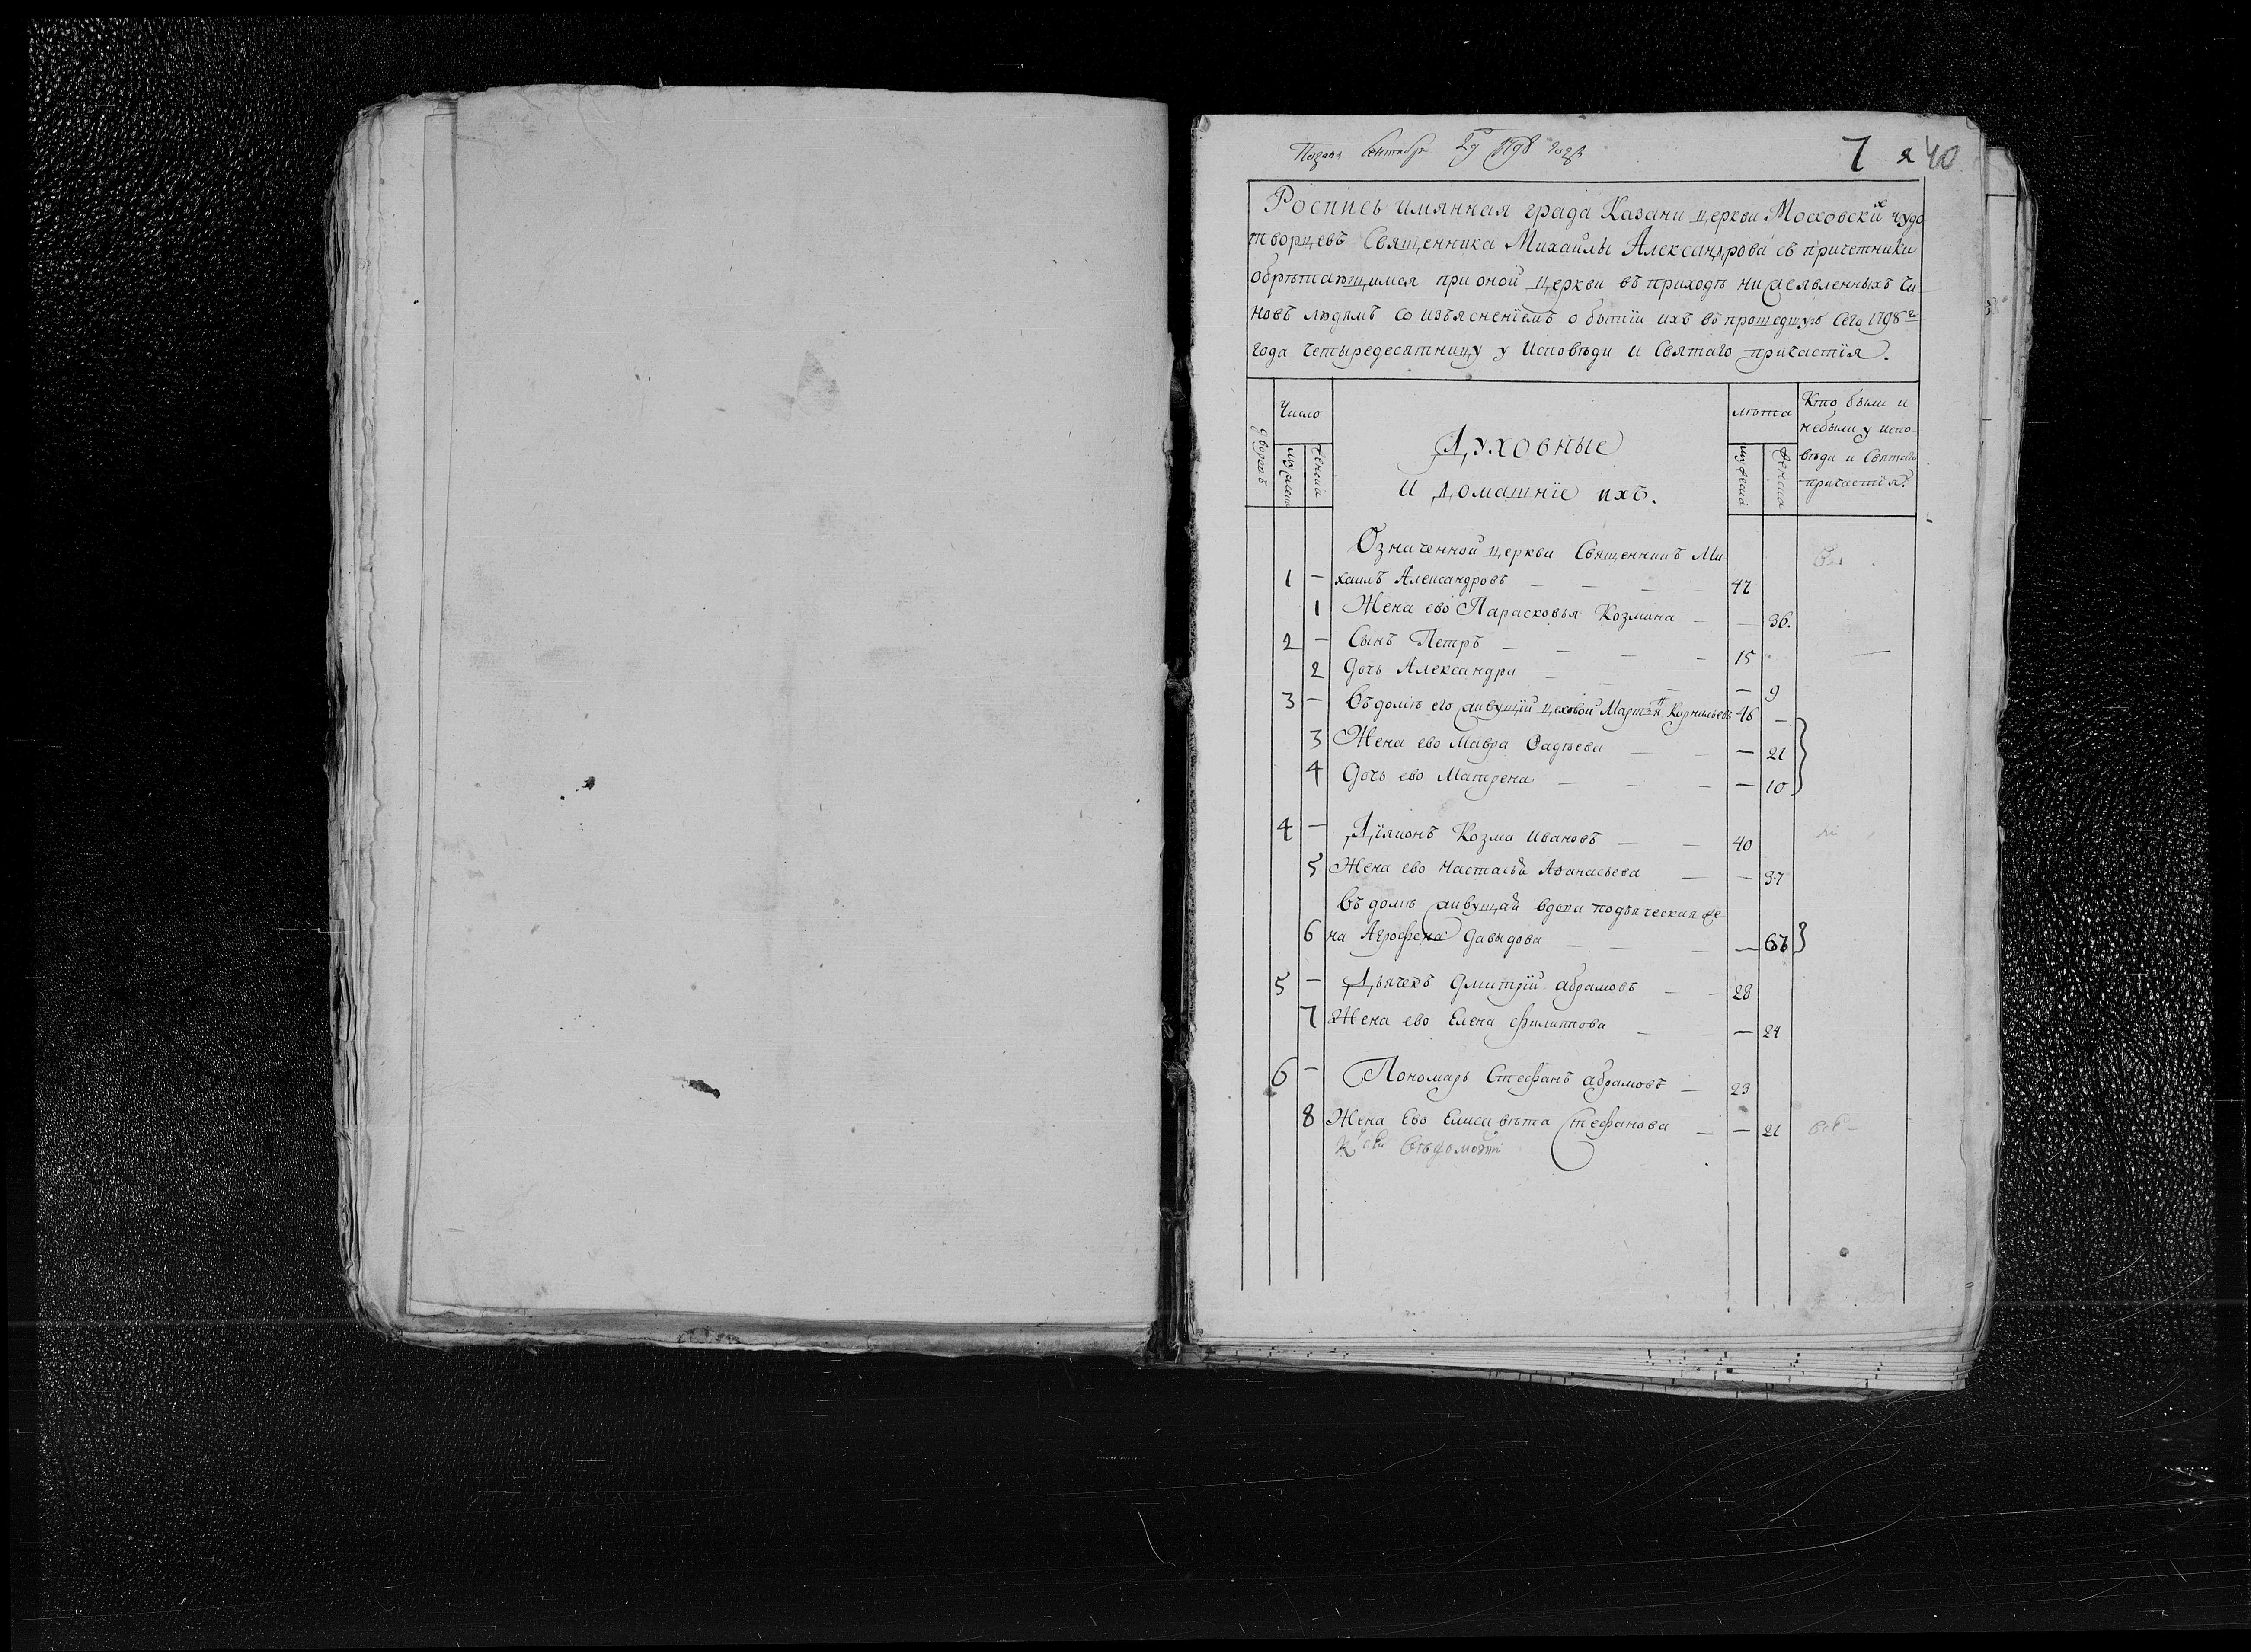 Подана Сентября 29 1798 года
7 я 40
Роспись имянная града Казани церкви Московскихъ чудо
творцевъ Священника Михаилы Александрова съ причетники
обрѣтающимся при оной церкви въ приходѣ нижеявленныхъ чи
новъ людямъ со изъясненіемъ о бытіи ихъ въ прошедшую сего 1798 г
года четыредесятницу у Исповѣди и Святаго причастія.
дворовъ
Число
мужеска
женска
Духовные
И Домашніе ихъ.
лѣта
мужеска
женска
Кто были и
небыли у испо-
вѣди и Святаго
причастія?
Означенной церкви Священникъ Ми
1 — хаилъ Александровъ — — — — 47
1 Жена ево Парасковья Козмина — — 36.
2 — Сынъ Петръ — — — — 15
2 Дочь Александра — — — — 9
3 — Въ домѣ его живущій цеховой Мартынъ Корнильевъ 46 —
3 Жена ево Мавра Фадѣева — — — 21
4 Дочь ево Матрена — — — — 10
4 — Діяконъ Козма Ивановъ — — 40
5 Жена ево Настасья Афанасьева — — 37
Въ домѣ живущая вдова подьяческая же
6 на Агрофена Давыдова — — — — 67
5 — Дьячекъ Дмитрій Абрамовъ — — 28
7 Жена ево Елена Филиппова — — — 24
6 — Пономарь Стефанъ Абрамовъ — 23
8 Жена Ево Елисавѣта Стефанова — — 21